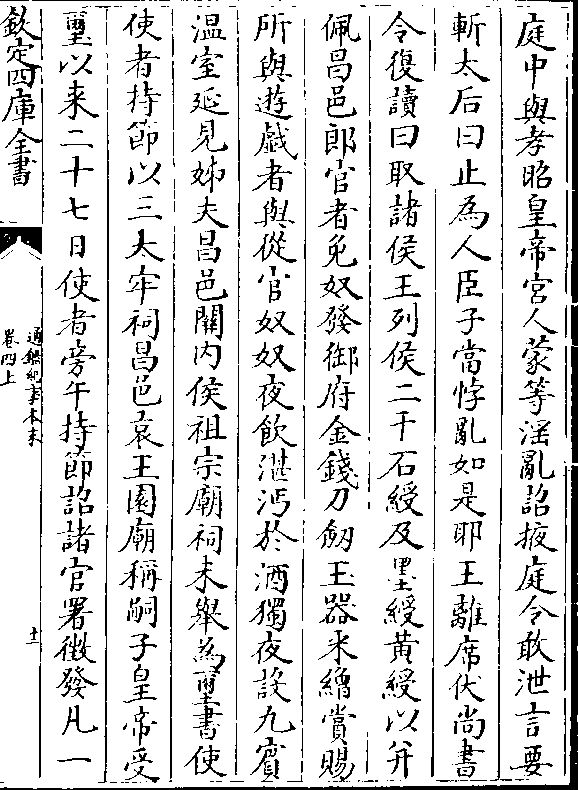 庭中與孝昭皇帝宮人蒙等淫亂詔掖庭令敢泄言要
斬太后曰止為人臣子當悖亂如是耶王離席伏尚書
令復讀曰取諸侯王列侯二千石綬及墨綬黃綬以并
佩昌邑郎官者免奴發御府金錢刀劒玉器采繒賞賜
所與遊戲者與從官奴奴夜飲湛沔於酒獨夜設九賓
温室延見姊夫昌邑關内侯祖宗廟祠未舉為璽書使
使者持節以三太牢祠昌邑哀王園廟稱嗣子皇帝受
璽以来二十七日使者旁午持節詔諸官署徵發凡一
欽定四庫全書
通鑑紀事本末
卷四上
十二